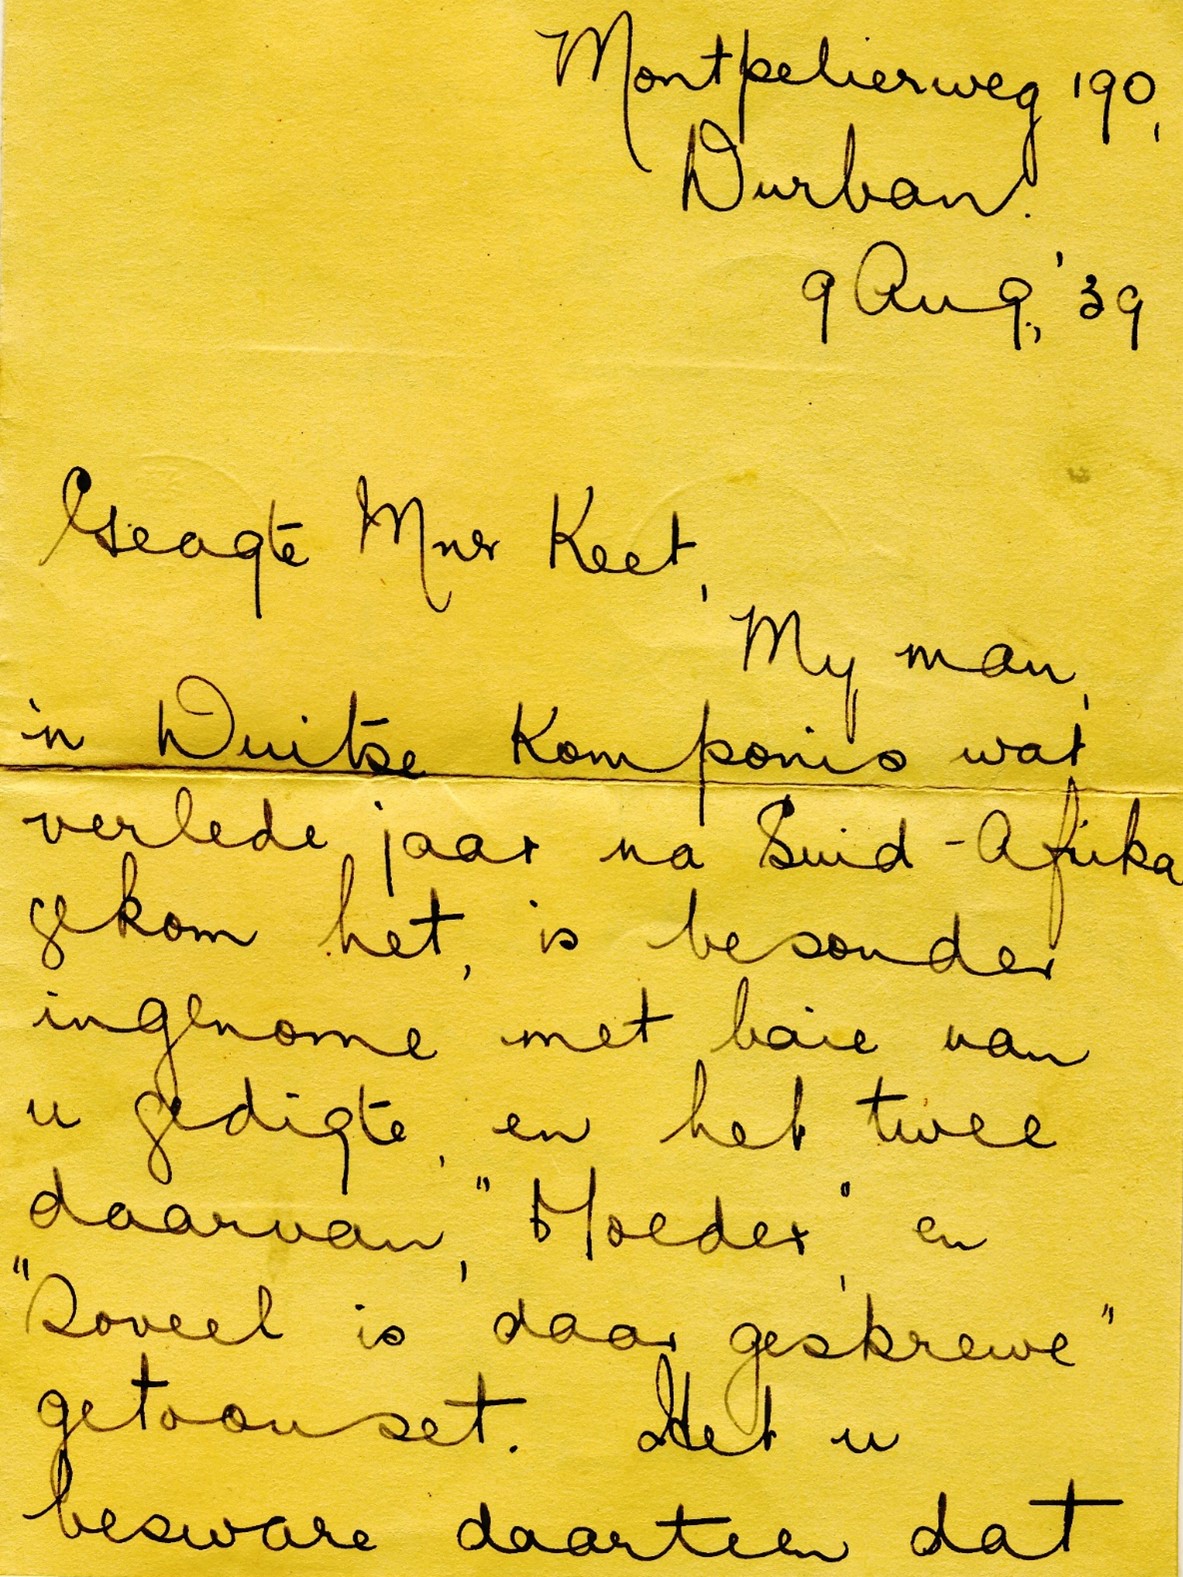 Montpelierweg 190,
Durban.
9 Aug., '39
Geagte Mnr Keet,
My man,
'n Duitse Komponis wat
verlede jaar na Suid-Afrika
gekom het, is besonder
ingenome met baie van
u gedigte, en het twee
daarvan, "Moeder" en
"Soveel is daar geskrewe"
getoonset. Het u
besware daarteen dat